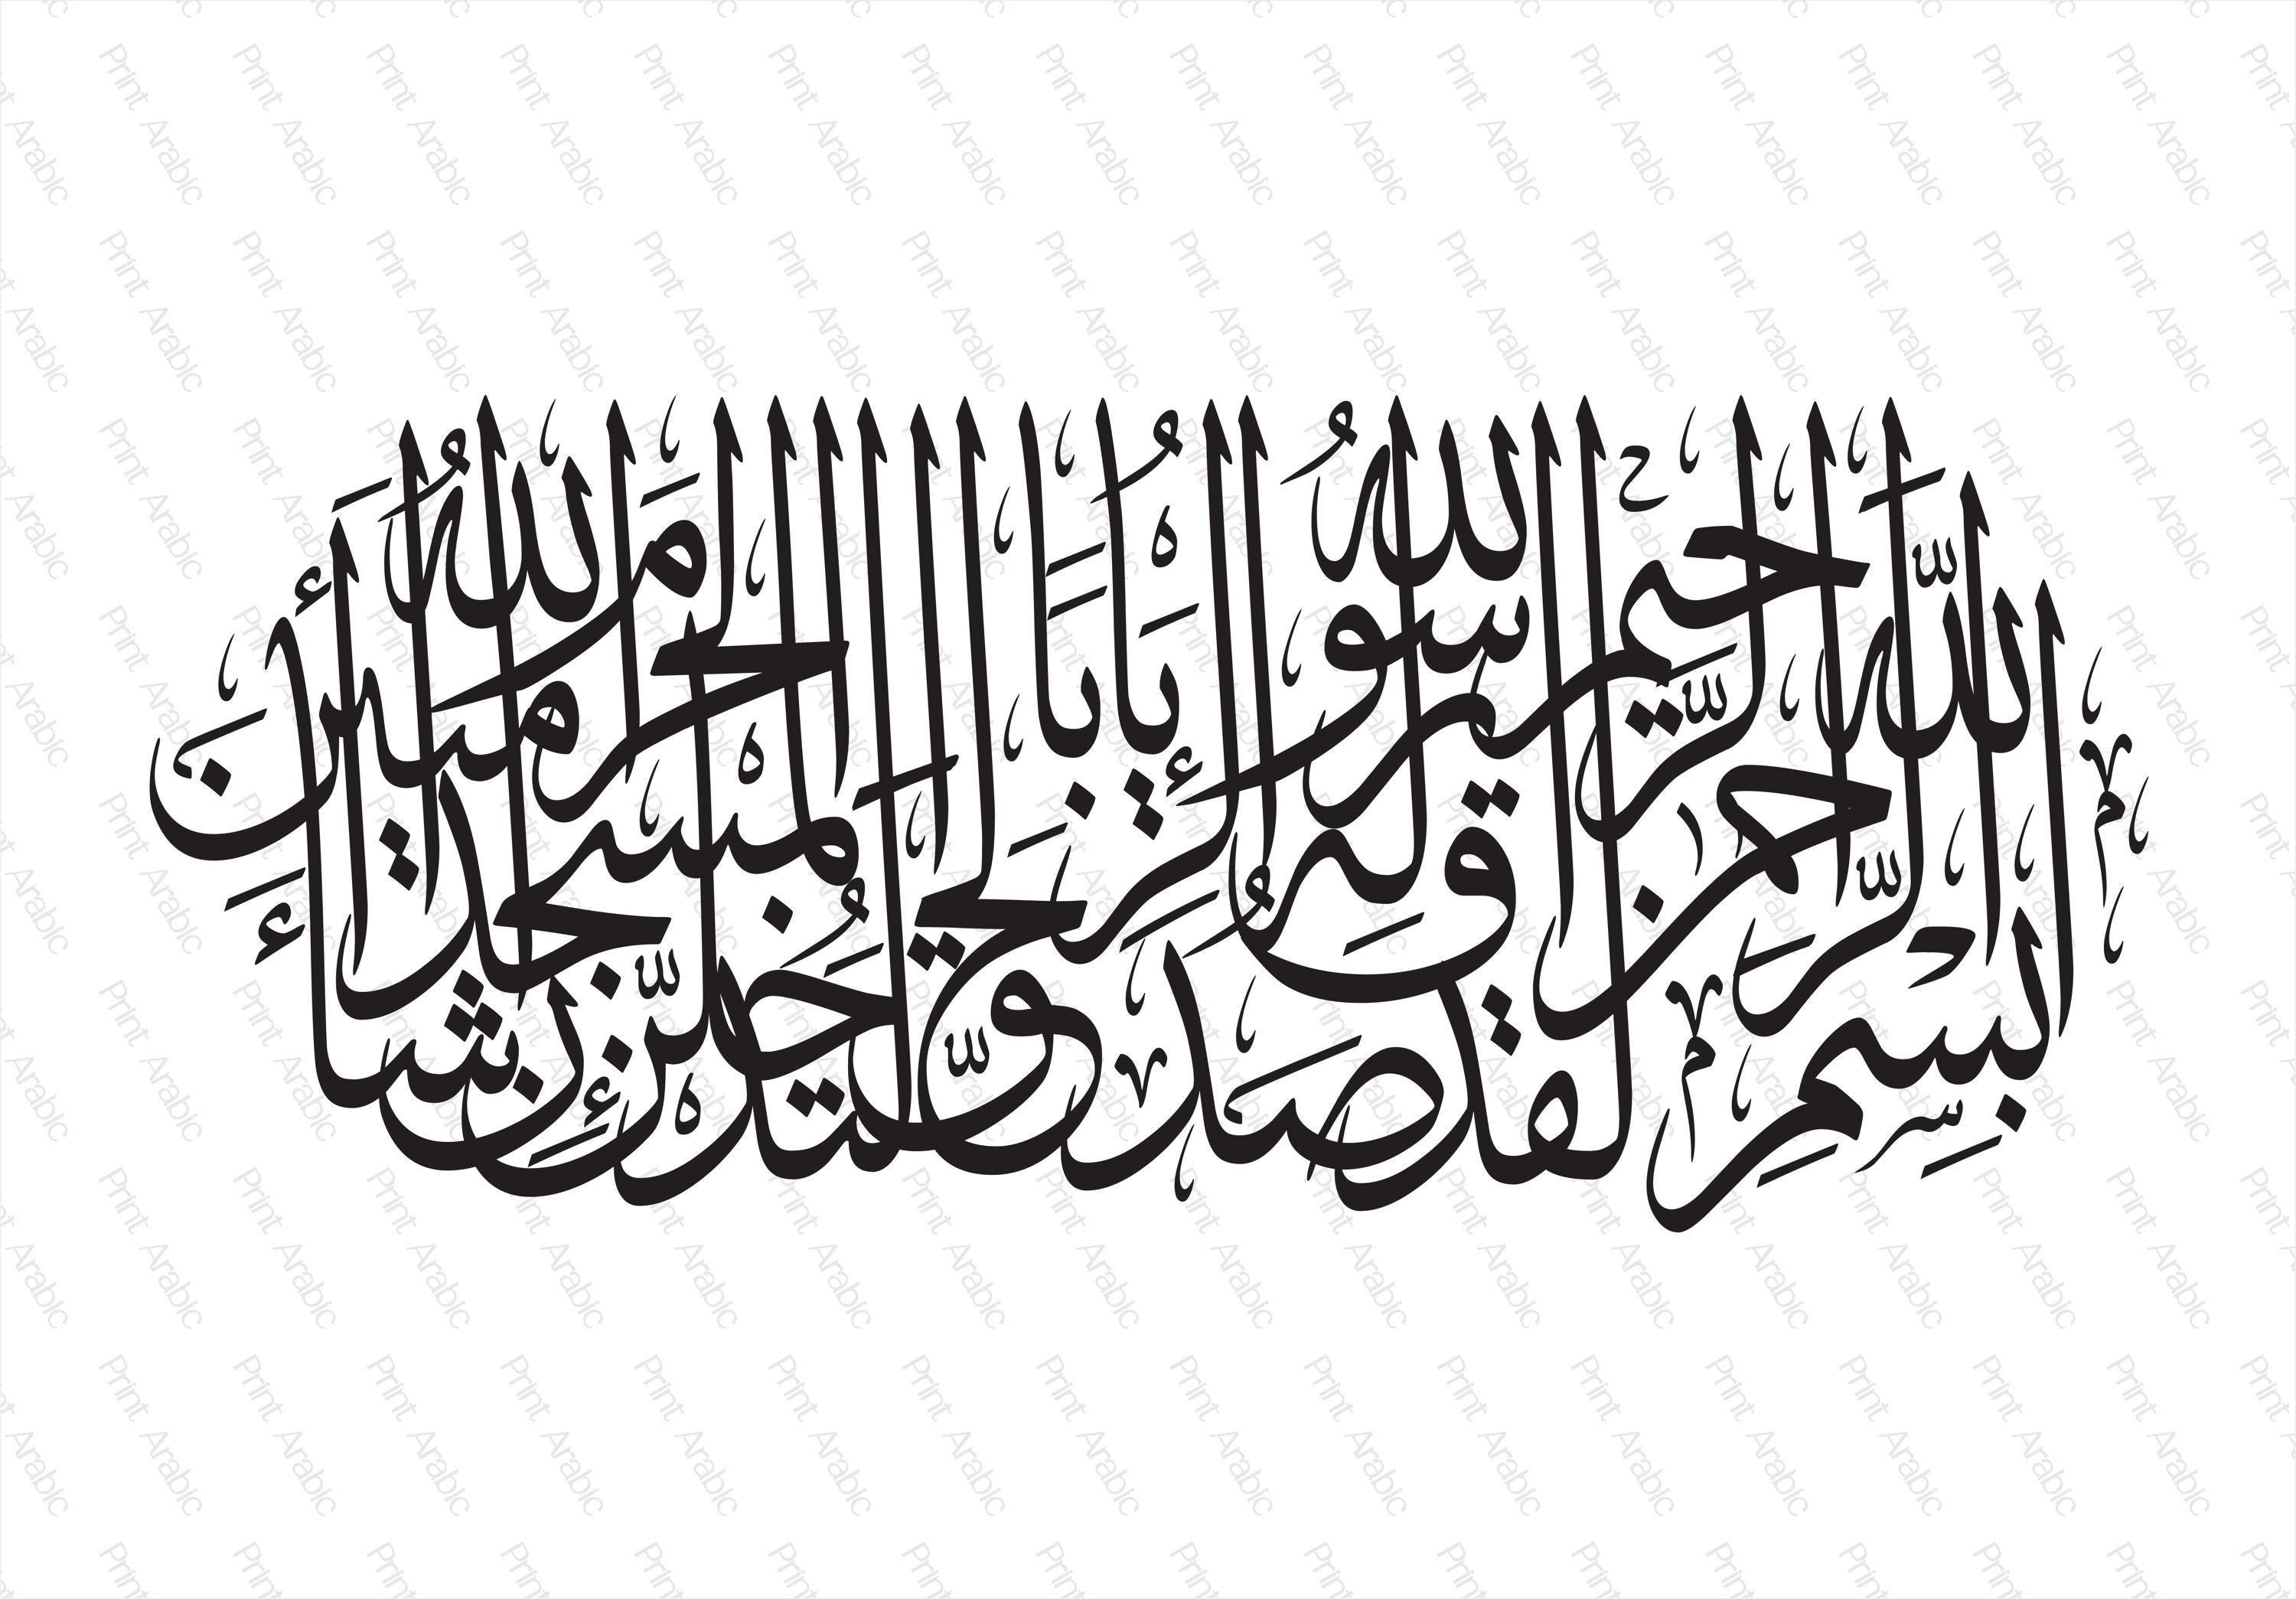 بِسْمِ اللهِ الرَّحْمٰنِ الرَّحِيمِ
لَقَدْ صَدَقَ اللهُ رَسُولَهُ الرُّءْيَا بِالْحَقِّ لَتَدْخُلُنَّ الْمَسْجِدَ الْحَرَامَ إِنْ شَاءَ اللهُ آمِنِينَ
Print Arabic